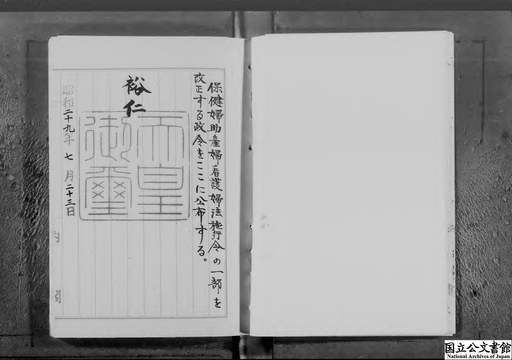 保健婦助産婦看護婦法施行令の一部を
改正する政令をここに公布する。
裕仁
天皇
御璽
昭和二十九年七月二十三日
国立公文書館
National Archives of Japan